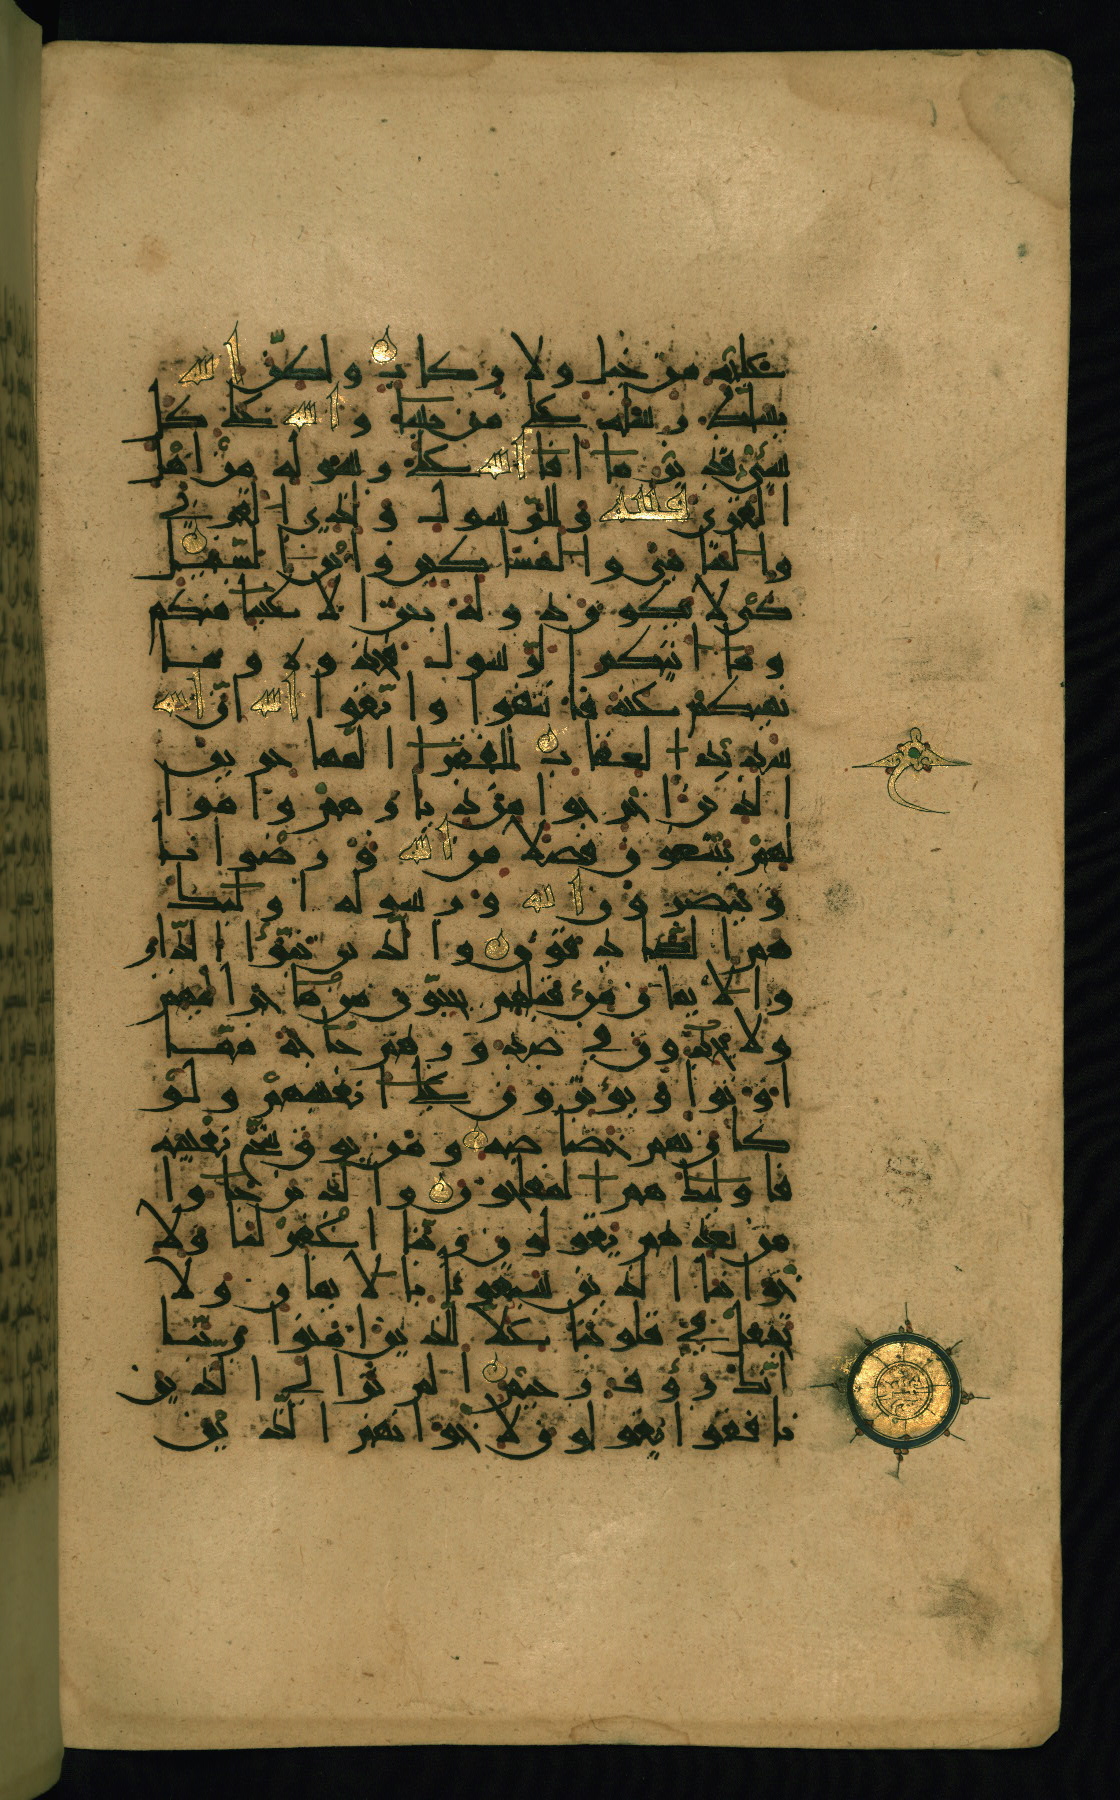 عليه من خيل ولا ركاب ولكن الله
يسلط رسله على من يشا والله على كل
شي قدير ما افا الله على رسوله من اهل
القرى فلله وللرسول ولذي القربى
واليتامى والمساكين وابن السبيل
كي لا يكون دولة بين الاغنيا منكم
وما اتيكم الرسول فخذوه وما
نهيكم عنه فانتهوا واتقوا الله ان الله
شديد العقاب للفقرا المهاجرين
الذين اخرجوا من ديارهم واموا
لهم يبتغون فضلا من الله ورضوانا
وينصرون الله ورسوله اوليك
هم الصادقون والذين تبوؤا الدار
والايمان من قبلهم يحبون من هاجر اليهم
ولا يجدون في صدورهم حاجة مما
اوتوا ويوثرون على انفسهم ولو
كان بهم خصاصة ومن يوق شح نفسه
فاوليك هم المفلحون والذين جاوا
من بعدهم يقولون ربنا اغفر لنا ولا
خواننا الذين سبقونا بالايمان ولا
تجعل في قلوبنا غلا للذين امنوا ربنا
انك روف رحيم الم تر الى الذين
نافقوا يقولون لاخوانهم الذين